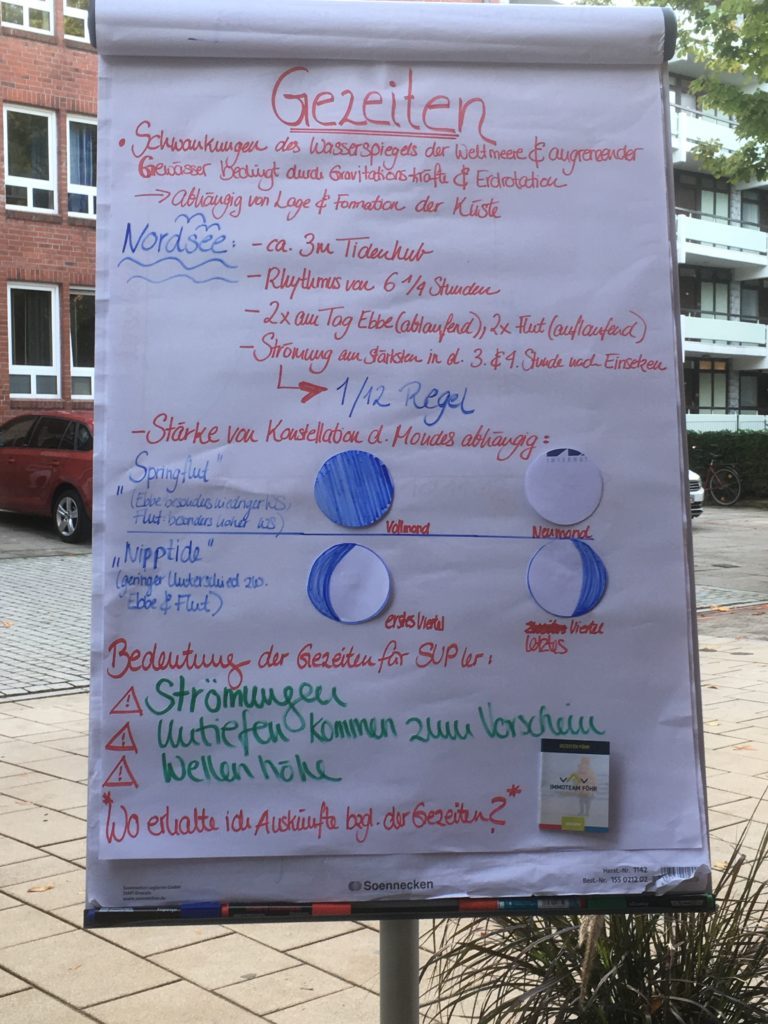 Gezeiten
• Schwankungen des Wasserspiegels der Weltmeere & angrenzender
Gewässer Bedingt durch Gravitationskräfte & Erdrotation
→ Abhängig von Lage & Formation der Küste
Nordsee: - ca. 3m Tidenhub
- Rhythmus von 6 1/4 Stunden
- 2x am Tag Ebbe (ablaufend), 2x Flut (auflaufend)
- Strömung am stärksten in d. 3. & 4. Stunde nach Einsetzen
1/12 Regel
- Stärke von Konstellation d. Mondes abhängig:
"Springflut"
(Ebbe besonders niedriger WS,
Flut: besonders hoher WS)
Vollmond
Neumond
"Nipptide"
(geringer Unterschied zw.
Ebbe & Flut)
erstes Viertel
Viertel
letztes
Bedeutung der Gezeiten für SUPler:
Strömungen
Untiefen kommen zum Vorschein
Wellenhöhe
GEZEITEN FÖHR
IMMOTEAM FÖHR
*Wo erhalte ich Auskünfte bzgl. der Gezeiten?*
Soennecken
Herst.-Nr. 1142
Best.-Nr. 155 0212 02